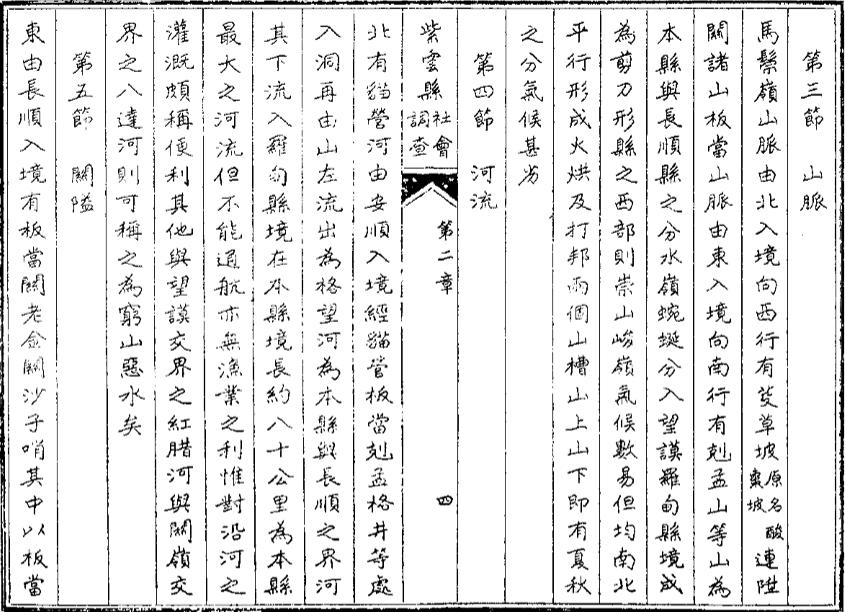 第三節 山脈
馬鬃嶺山脈由北入境向西行有芟草坡原名酸棗坡連陞
關諸山板當山脈由東入境向南行有剋孟山等山為
本縣與長順縣之分水嶺蜿蜒分入望謨羅甸縣境成
為剪刀形縣之西部則崇山峻嶺氣候數易但均南北
平行形成火烘及打邦兩個山槽山上山下即有夏秋
之分氣候甚劣
第四節 河流
紫雲縣社會調查 第二章 四
北有猫營河由安順入境經猫營板當剋孟格井等處
入洞再由山左流出為格望河為本縣與長順之界河
其下流入羅甸縣境在本縣境長約八十公里為本縣
最大之河流但不能通航亦無漁業之利惟對沿河之
灌溉頗稱便利其他與望謨交界之紅腊河與關嶺交
界之八達河則可稱之為窮山惡水矣
第五節 關隘
東由長順入境有板當關老金關沙子哨其中以板當